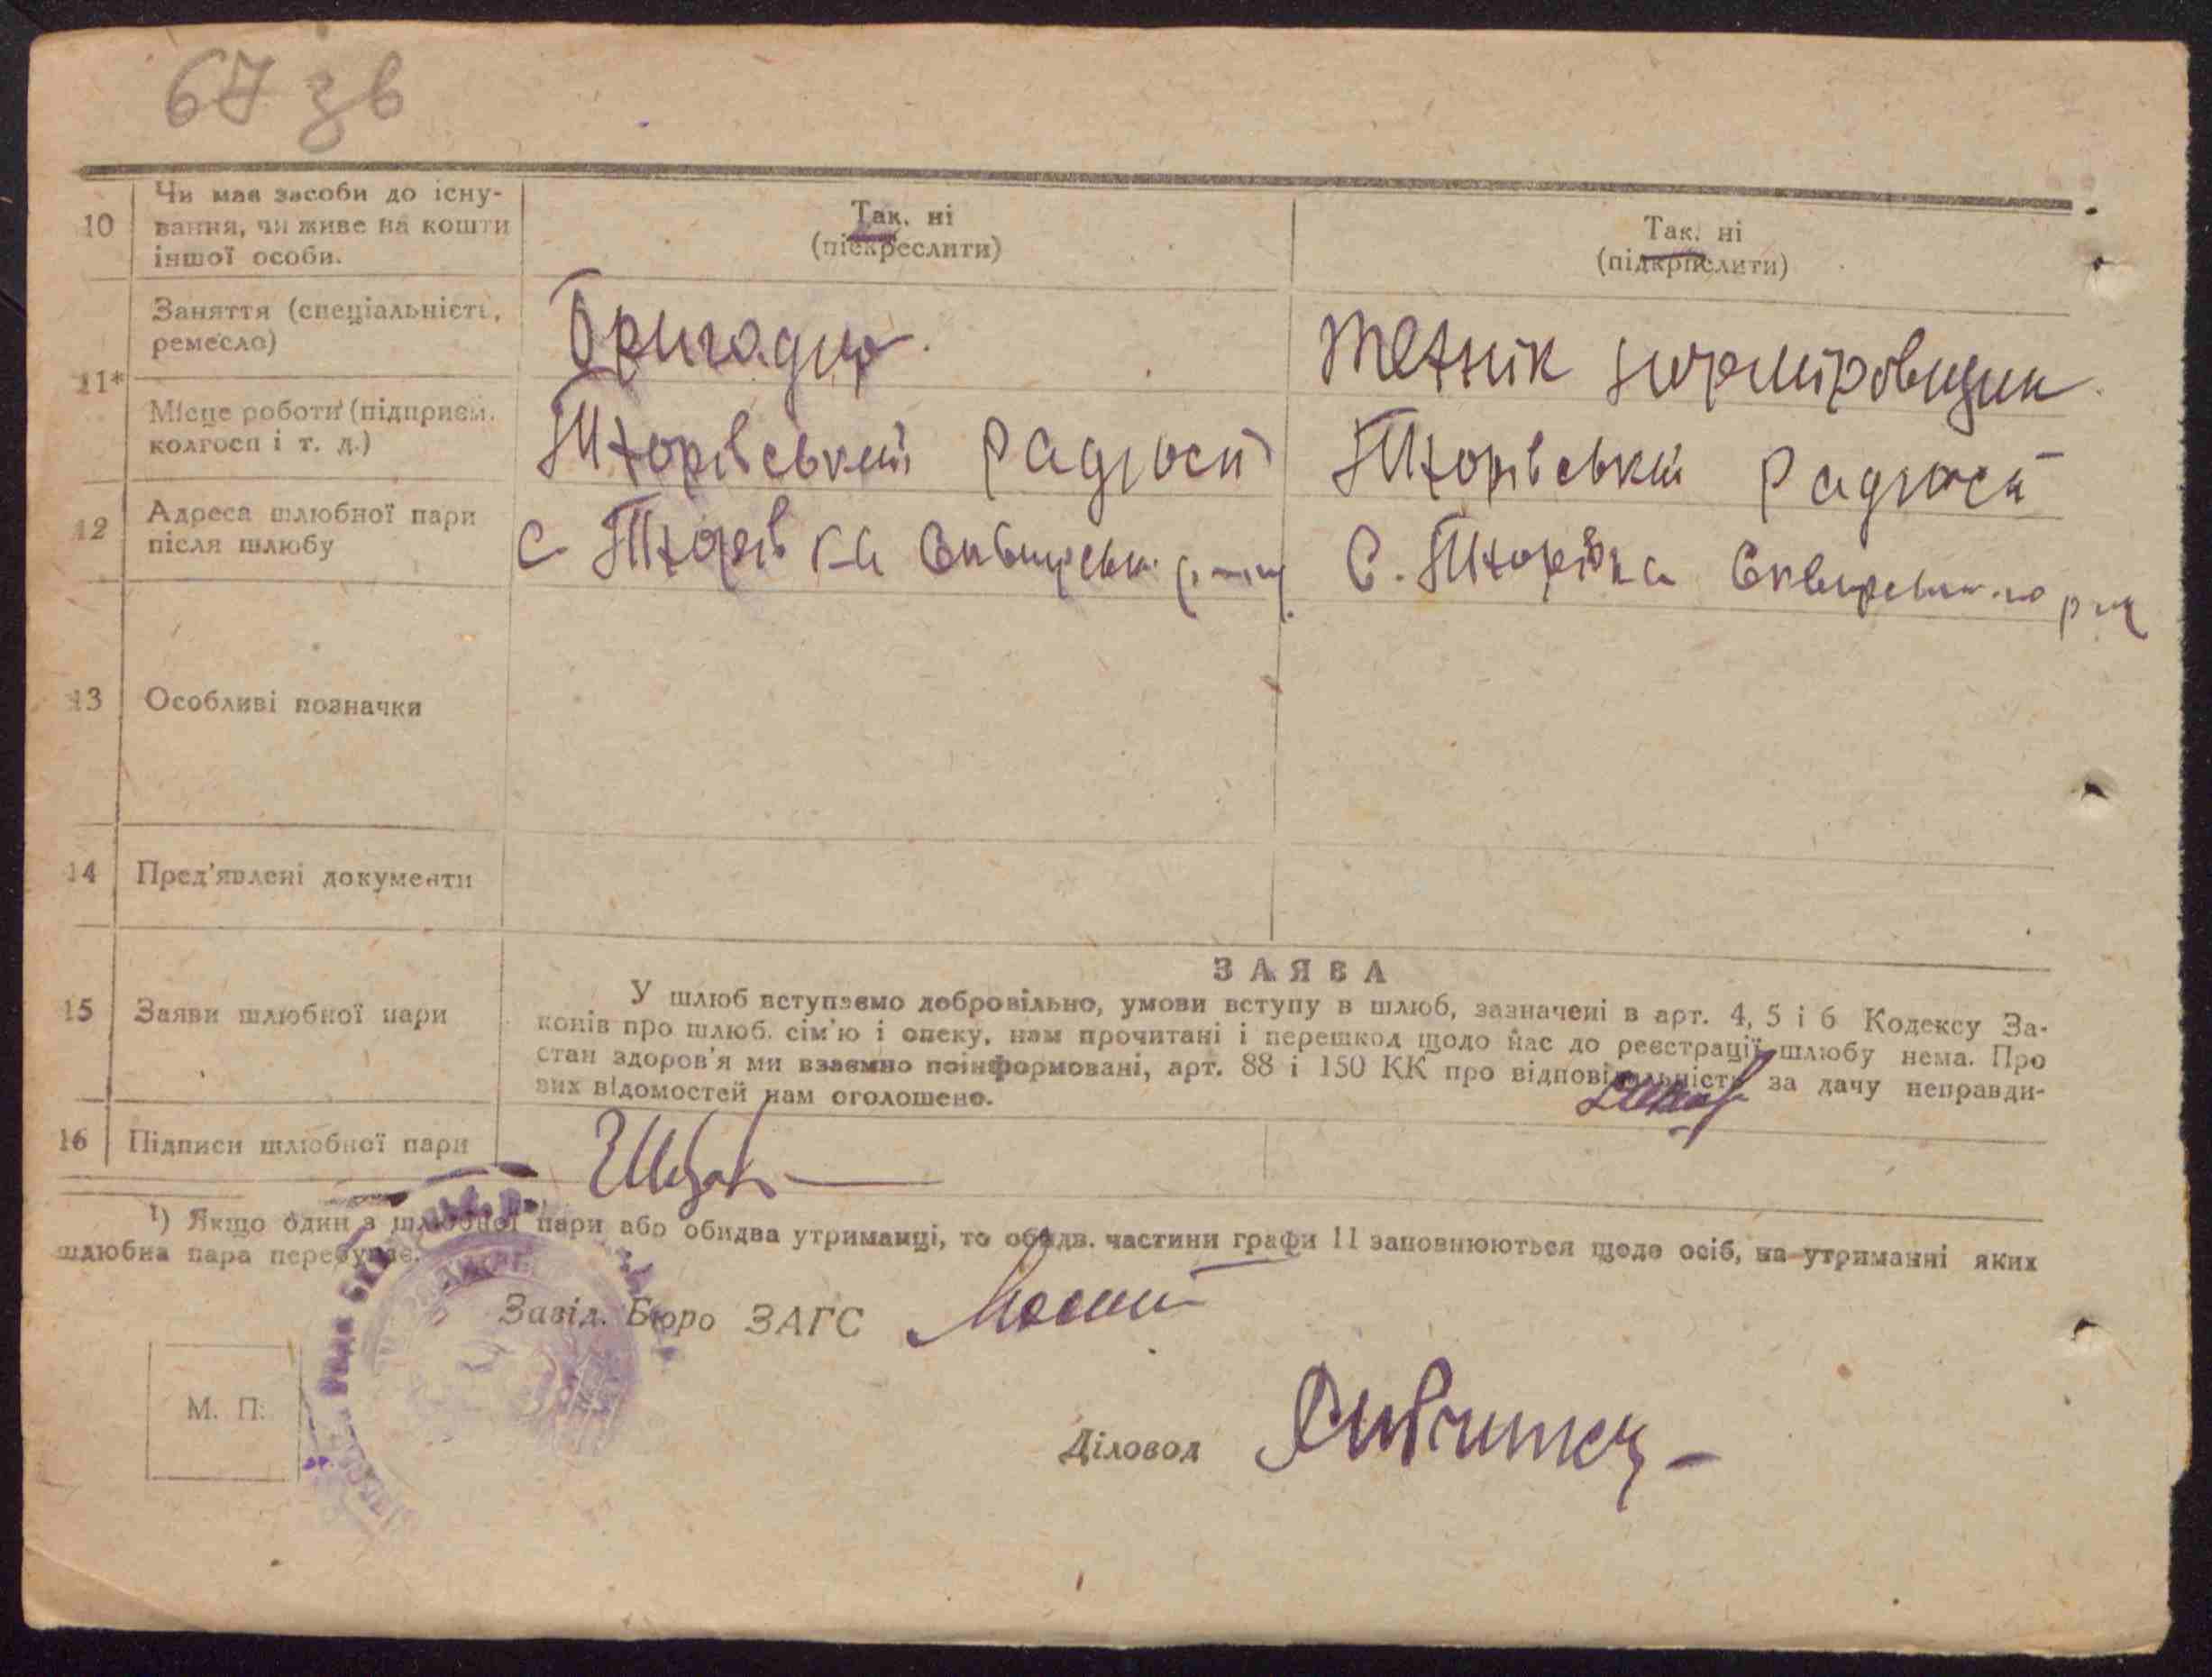 67 зв
10
Чи має засоби до існу-
вання, чи живе на кошти
іншої особи.
Так, ні
(підкреслити)
Так, ні
(підкріслити)
11*
Заняття (спеціальність,
ремесло)
Бригадир.
Технік норміровщик.
Місце роботи (підприєм.
колгосп і т. д.)
Тхорівський радгосп
Тхорівській радгосп
12
Адреса шлюбної пари
після шлюбу
с Тхорівка Сквирськ.
С. Тхорівка Сквирського р-ну
13
Особливі позначки
14
Пред'явлені документи
15
Заяви шлюбної пари
ЗАЯВА
У шлюб вступаємо добровільно, умови вступу в шлюб, зазначені в арт. 4, 5 і 6 Кодексу За-
конів про шлюб. сім'ю і опеку, нам прочитані і перешкод щодо нас до реєстрації шлюбу нема. Про
стан здоров'я ми взаємно поінформовані, арт. 88 і 150 КК про відповідальність за дачу неправди-
вих відомостей нам оголошено.
16
Підписи шлюбної пари
¹) Якщо один з шлюбної пари або обидва утриманці, то обидв. частини графи 11 заповнюються щодо осіб, на утриманні яких
шлюбна пара перебуває.
Завід. Бюро ЗАГС
М. П.
Діловод